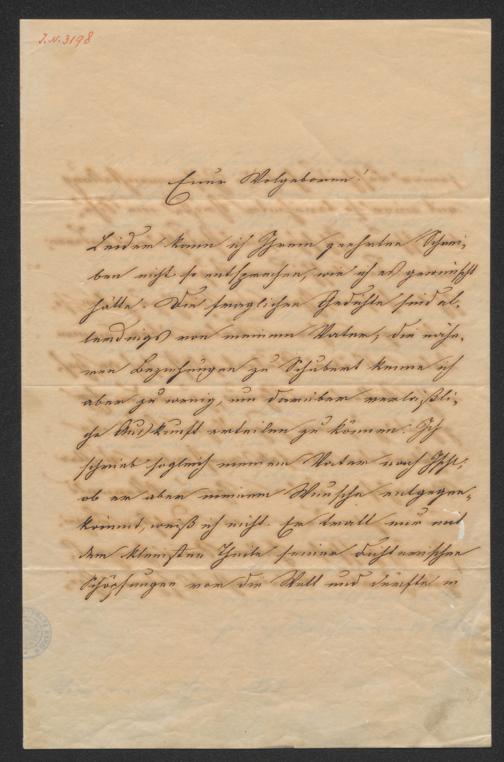 J.N. 3198
Euer Wolgeboren!
Leider kann ich Ihrem geehrten Schrei-
ben nicht so entsprechen, wie ich es gewünscht
hätte. Die fraglichen Gedichte sind al-
lerdings von meinem Vater, die nähe-
ren Beziehungen zu Schubert kenne ich
aber zu wenig, um darüber verläßli-
che Auskunft erteilen zu können. Ich
schrieb sogleich meinem Vater nach Ischl,
ob er aber meinem Wunsche entgegen-
kommt, weiß ich nicht. Er tratt nur mit
dem kleinsten Theile seiner dichterischen
Schöpfungen vor die Welt und dürfte